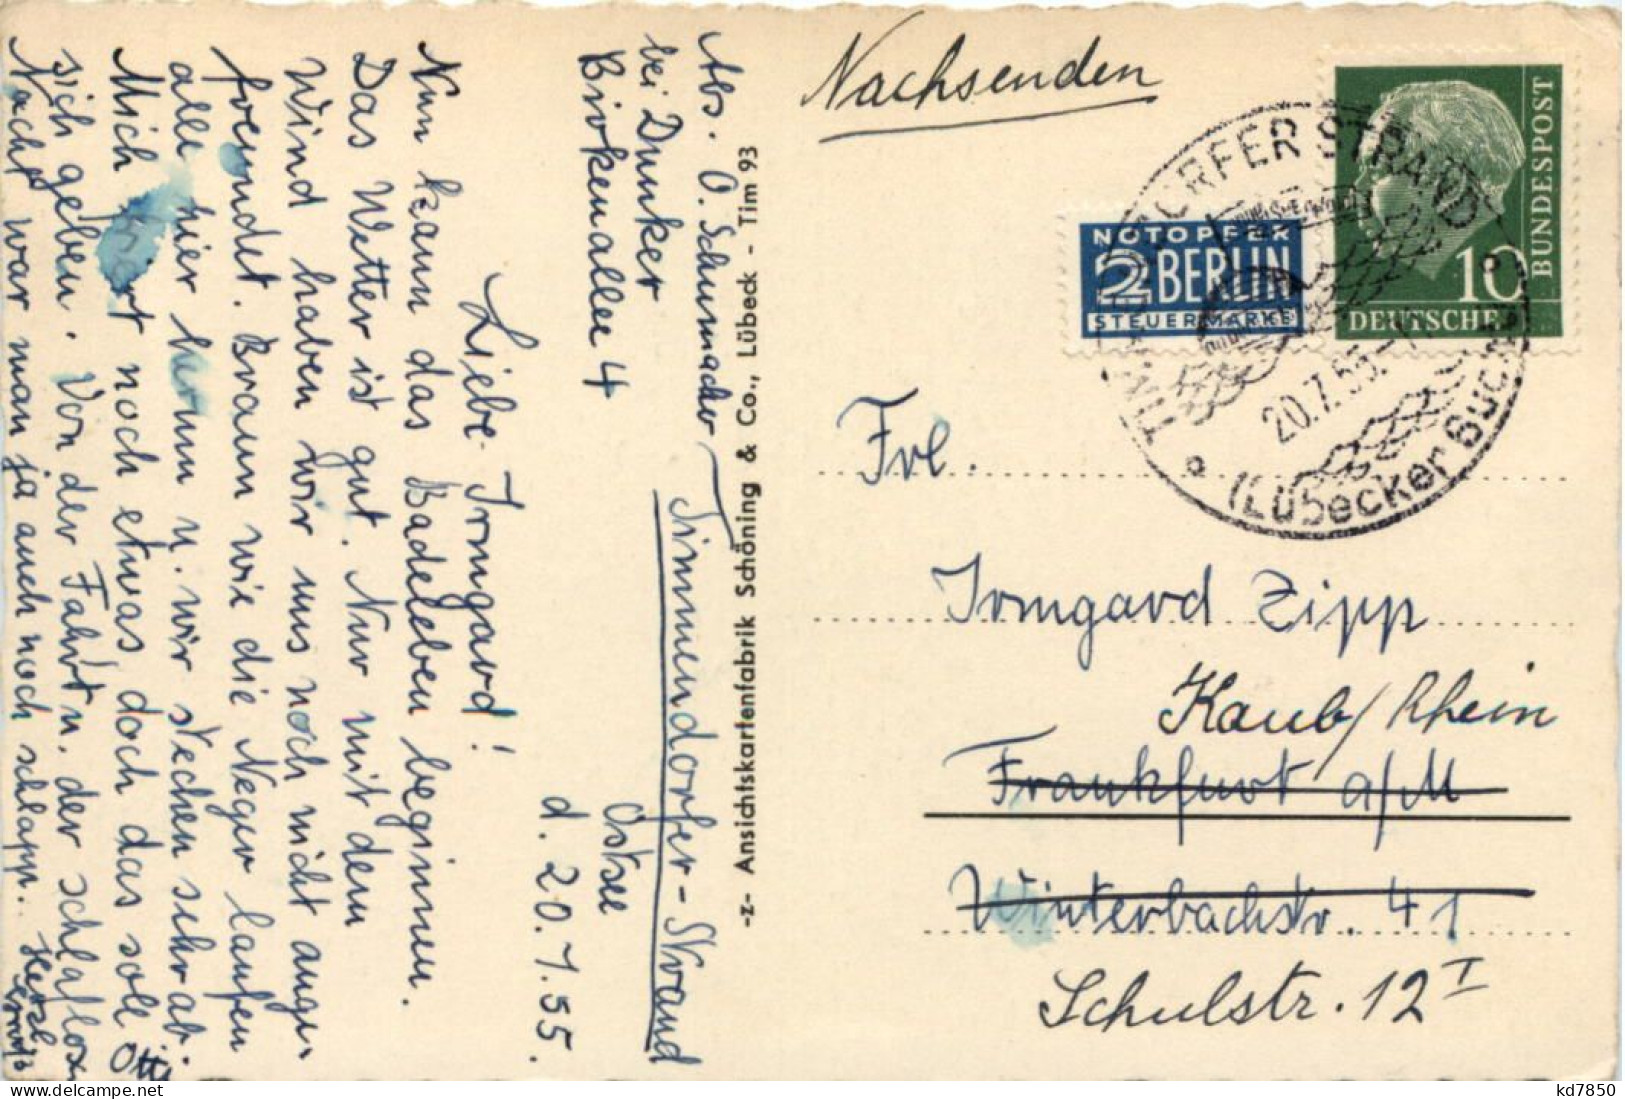 Abs. O. Schumacher Timmendorfer-Strand
bei Dunker
Birkenallee 4
Ostsee
d. 20.7.55.
Liebe Irmgard!
Nun kann das Badeleben beginnen.
Das Wetter ist gut. Nur mit dem
Wind haben wir uns noch nicht ange-
freundet. Braun wie die Neger laufen
alle hier herum u. wir stechen sehr ab.
Mich friert noch etwas doch das soll
sich geben. Von der Fahrt u. der schlaflosen
Nacht war man ja auch noch schlapp.
Otti
-z- Ansichtskartenfabrik Schöning & Co., Lübeck - Tim 93
Nachsenden
NOTOPFER
2 BERLIN
STEUERMARKE
10
DEUTSCHE
BUNDESPOST
TIMMENDORFER STRAND
20.7.55.-
(Lübecker Bucht)
Frl.
Irmgard Zipp
Kaub/Rhein
Frankfurt a/M
Winterbachstr. 41
Schulstr. 12 I
kd7850